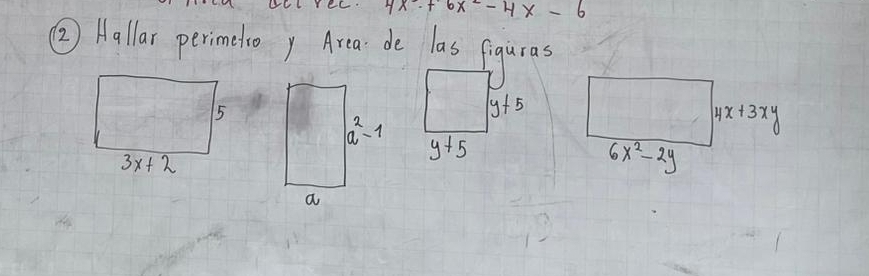 Area del rec. 4x³ + 6x² - 4x - 6
② Hallar perimetro y Area de las figuras
5
3x+2
a²-1
a
y+5
y+5
4x+3xy
6x²-2y